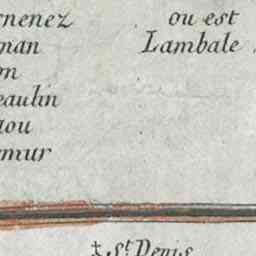 rnenez
nan
on
eaulin
aou
mur
ou est
Lambale
St. Denis